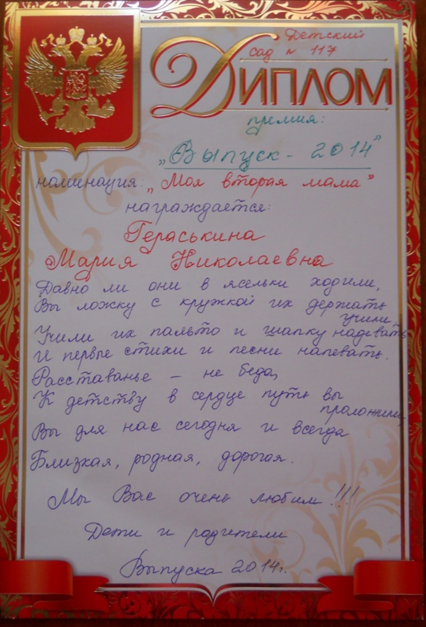 Детский
сад № 117
Диплом
премия:
„Выпуск - 2014"
номинация: „Моя вторая мама"
награждается:
Гераськина
Мария Николаевна
Давно ли они в ясельки ходили,
Вы ложку с кружкой их держать
учили.
Учили их пальто и шапку надевать
И первые стихи и песни напевать.
Расставанье – не беда,
К детству в сердце путь вы
проложили,
Вы для нас сегодня и всегда
Близкая, родная, дорогая.
Мы Вас очень любим!!!
Дети и родители
Выпуска 2014г.